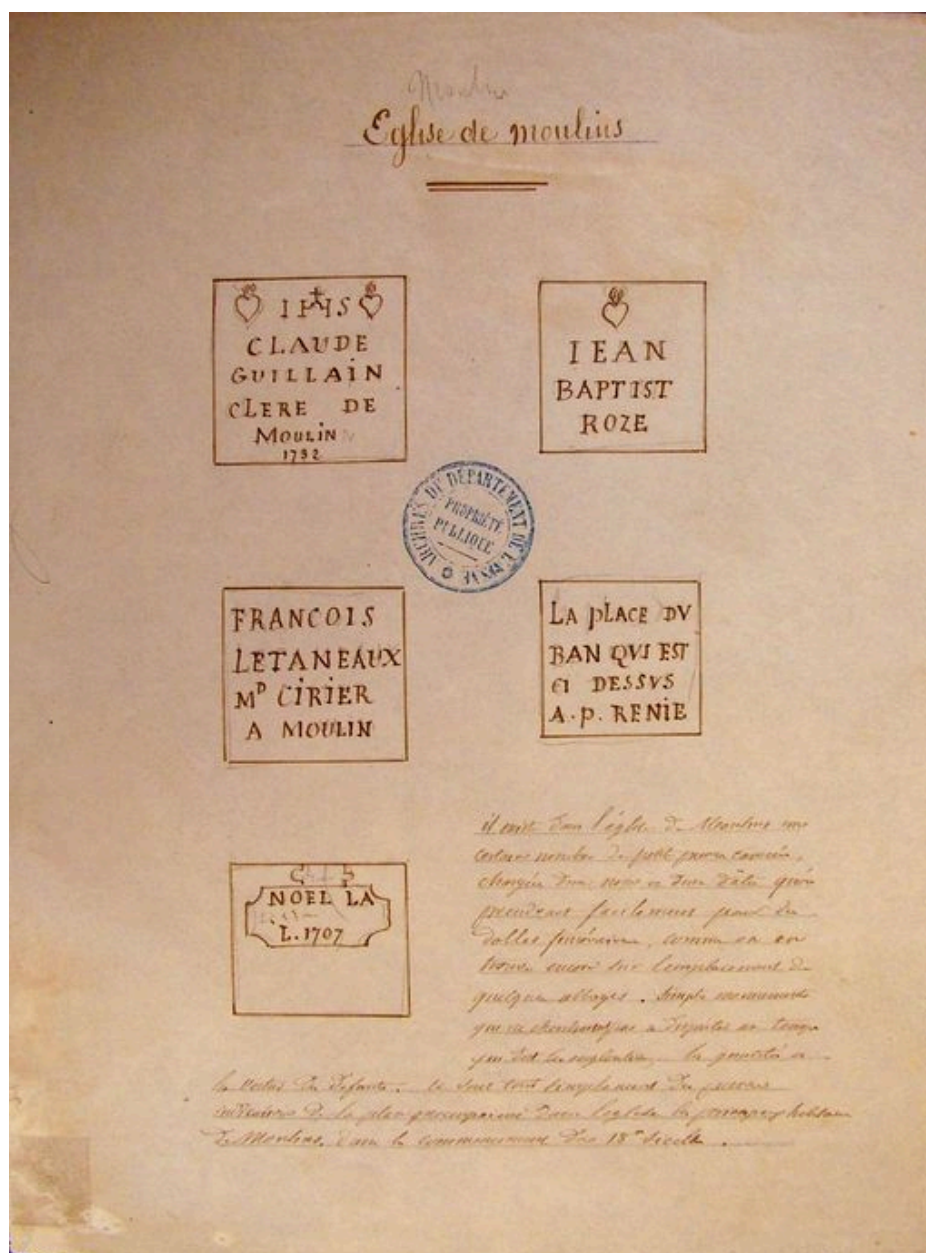 Moulin
Eglise de moulins
IHS
CLAUDE
GUILLAIN
CLERE DE
MOULIN
1732
IEAN
BAPTIST
ROZE
ARCHIVES DU DÉPARTEMENT DE L'AISNE
PROPRIÉTÉ
PUBLIQUE
FRANCOIS
LETANEAUX
MD CIRIER
A MOULIN
LA PLACE DV
BAN QVI EST
CI DESSVS
A.P. RENIE
NOEL LA
L.1707
il existe dans l'église de Moulins un
certain nombre de petit pierre carrée,
chargée d'un nom et d'une date qu'on
prendrait facilement pour des
dalles funéraires, comme on en
trouve encore sur l'emplacement de
quelques abbayes. Simple monument
qui ne
la vertu des défunts. ce sont tout simplement des pierres
de la place dans l'église
de Moulins, dans le commencement du 18e siècle.